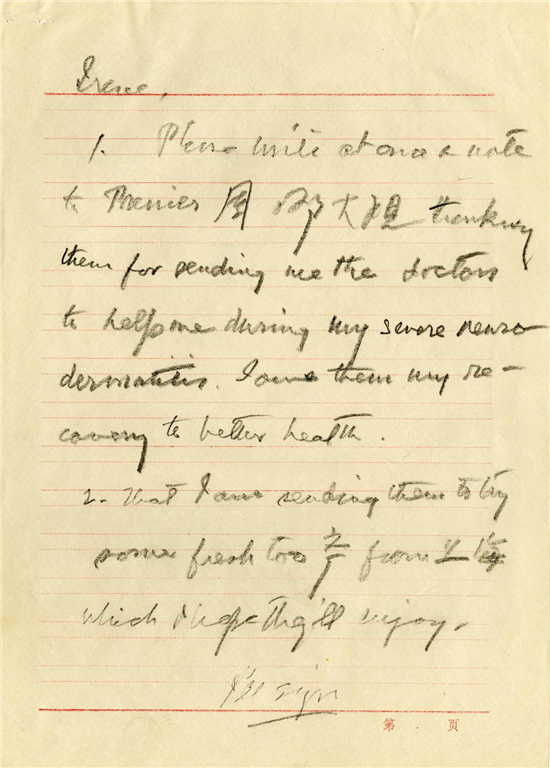 Irene,
1. Please write at once a note
to Premier 周 大姐 thanking
them for sending me the doctors
to help me during my severe neuro
dermatitis. I owe them my re-
covery to better health.
2. That I am sending them to try
some fresh from
which I hope they'll enjoy.
I'll sign
第 页